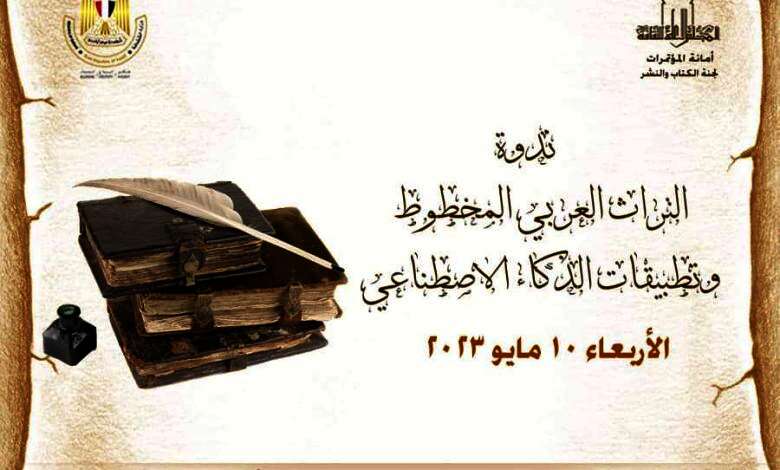 المجلس الأعلى للثقافة
أمانة المؤتمرات
لجنة الكتاب والنشر
ندوة
التراث العربي المخطوط
وتطبيقات الذكاء الاصطناعي
الأربعاء ١٠ مايو ٢٠٢٣